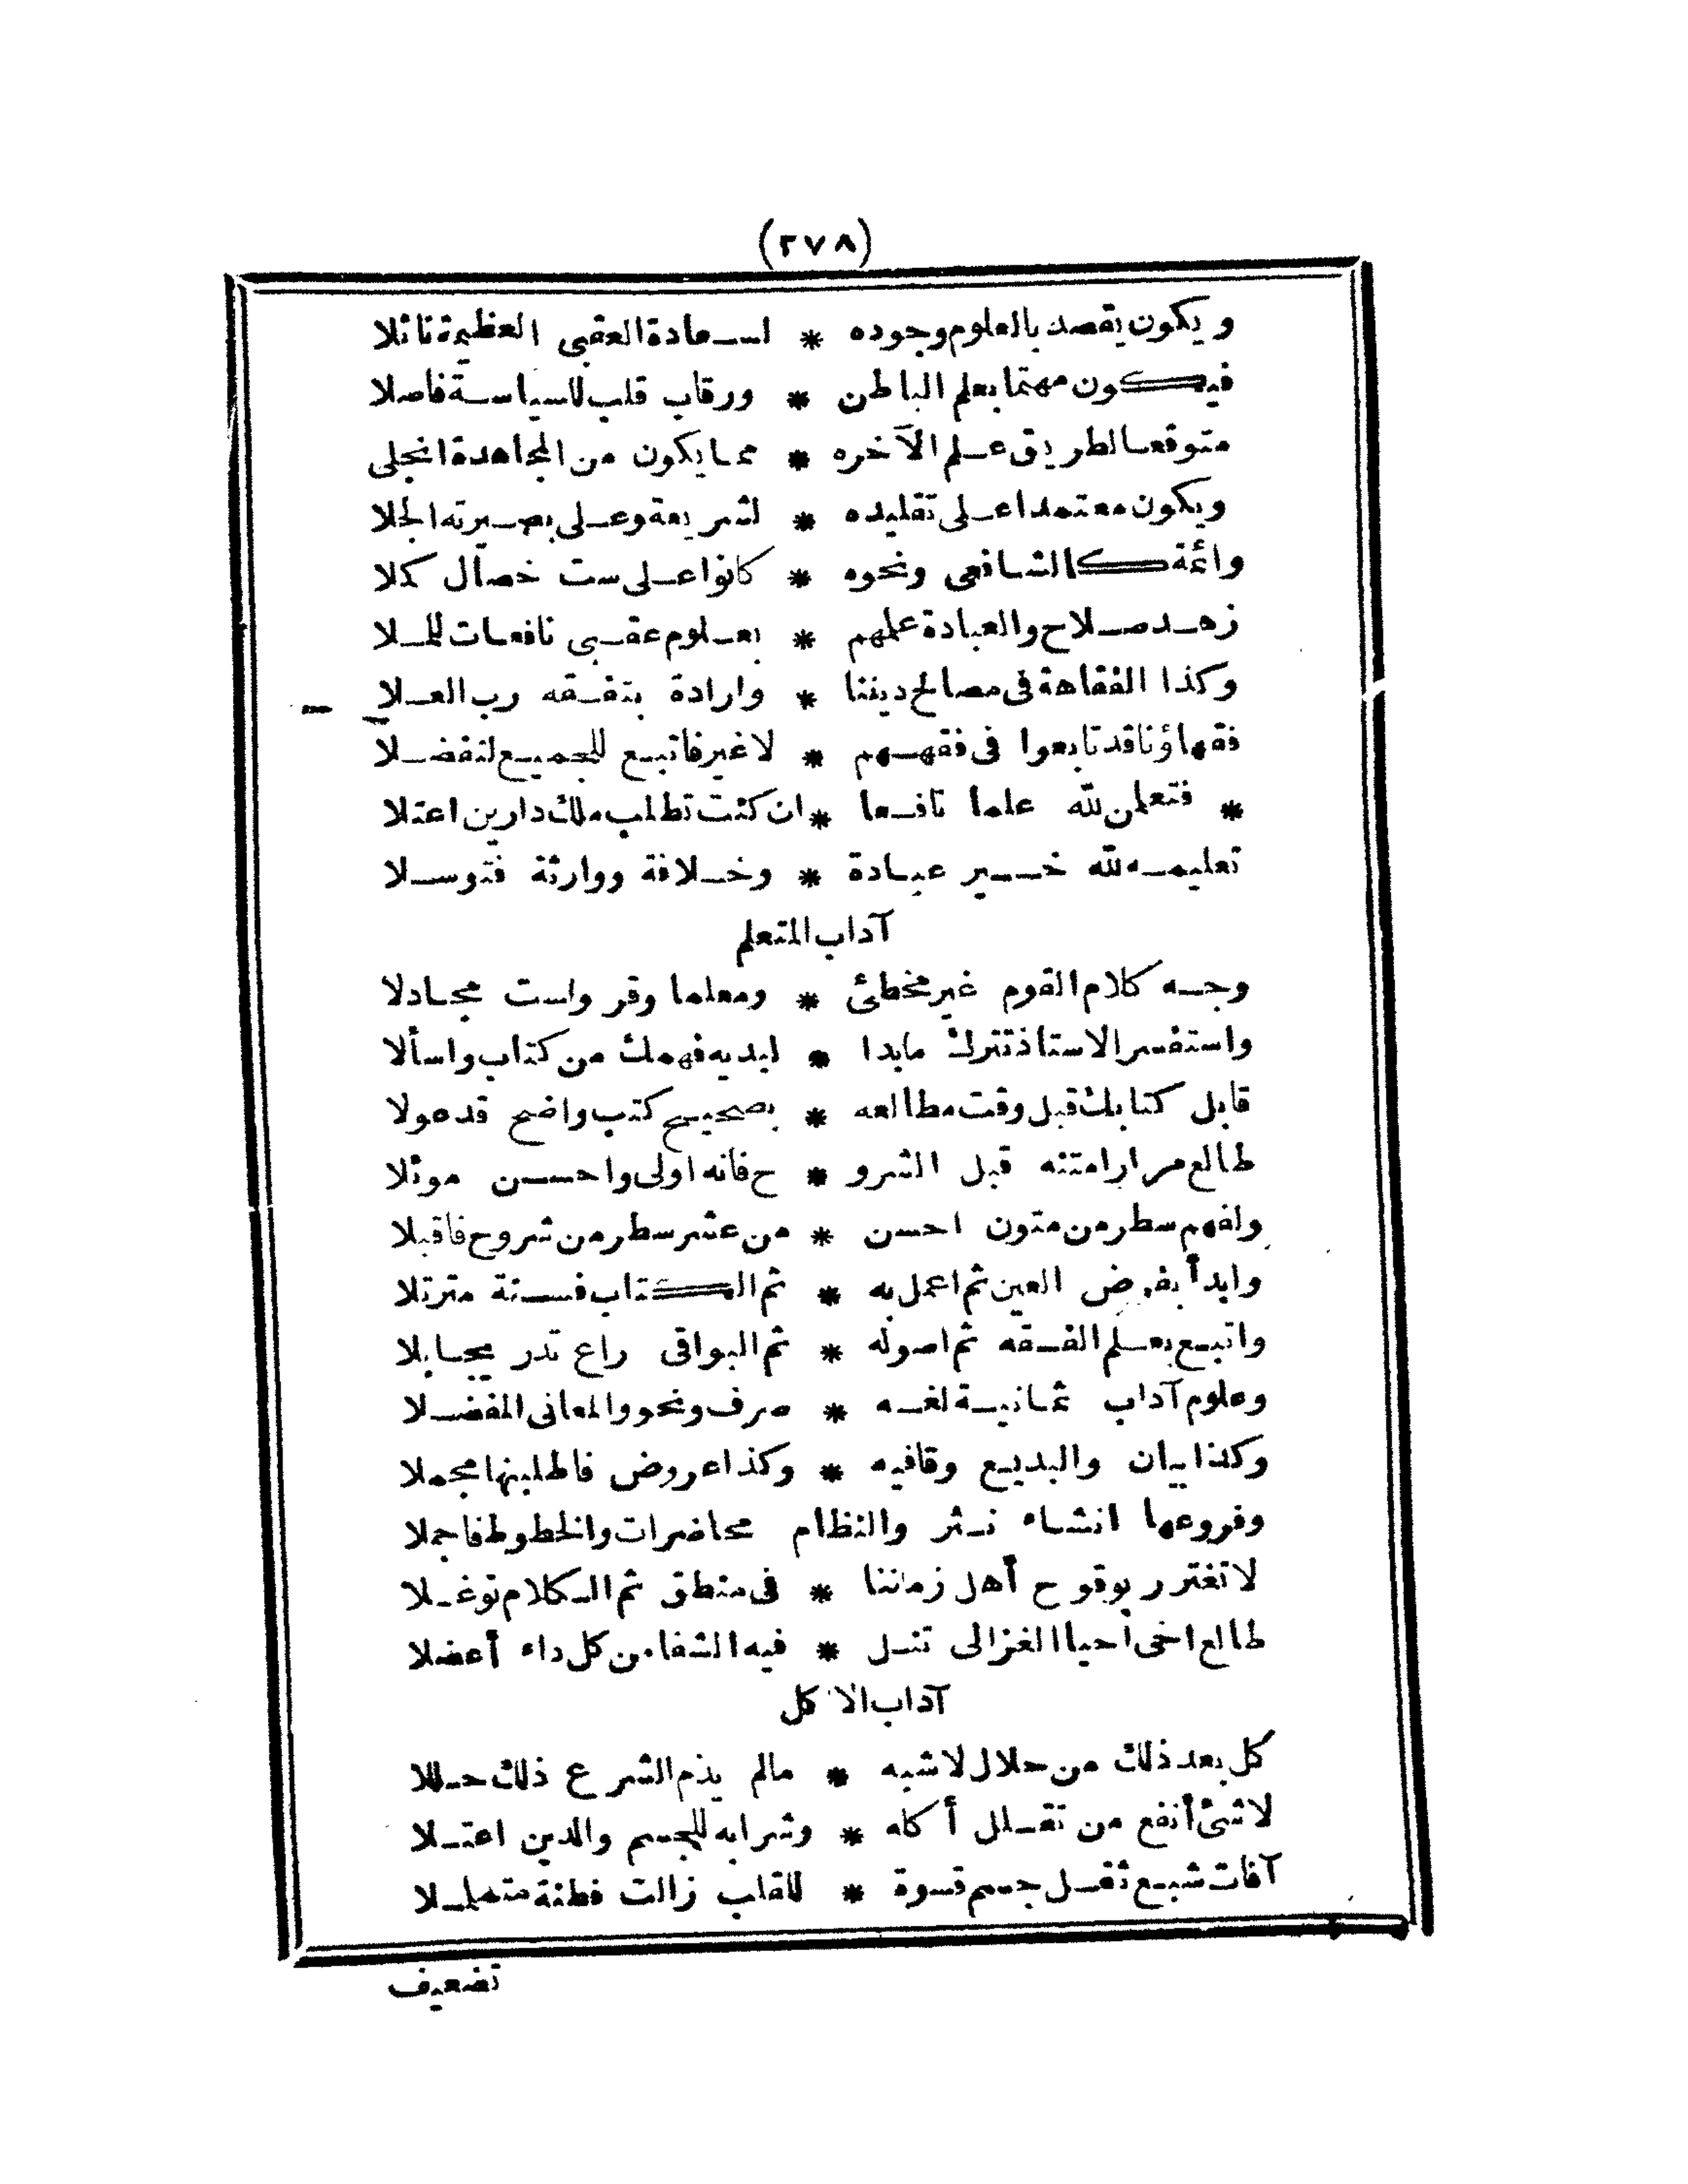 (٢٧٨)
ويكون يقصد بالعلوم وجوده * لسعادة العقبى العظيمة نائلا
فيكون مهتما بعلم الباطن * ورقاب قلب للسياسة فاصلا
متوقعا لطريق علم الآخره * مما يكون من المجاهدة انجلى
ويكون معتمدا على تقليده * لشريعة وعلى بصيرته الجلا
وائمة كالشافعى ونحوه * كانوا على ست خصال كملا
زهد صلاح والعبادة علمهم * بعلوم عقبى نافعات للملا
وكذا الفقاهة فى مصالح ديننا * وارادة بتفقه رب العلا
فقهاؤنا قد تابعوا فى فقههم * لا غير فاتبع للجميع لتفضلا
* فتعلمن لله علما نافعا * ان كنت تطلب ملك دارين اعتلا
تعليمه لله خير عبادة * وخلافة ووارثة فتوسلا
آداب المتعلم
وجه كلام القوم غير مخطئ * ومعلما وقر ولست مجادلا
واستفسر الاستاذ تترك مابدا * لبديه فهمك من كتاب واسألا
قابل كتابك قبل وقت مطالعه * بصحيح كتب واضح قد عولا
طالع مرارا متنه قبل الشرو * ح فانه اولى واحسن موئلا
ولفهم سطر من متون احسن * من عشر سطر من شروح فاقبلا
وابدأ بفرض العين ثم اعمل به * ثم الكتاب فسنة مترتلا
واتبع بعلم الفقه ثم اصوله * ثم البواقى راع تدر محابلا
وعلوم آداب ثمانية لغه * صرف ونحو والمعانى المفضلا
وكذا بيان والبديع وقافيه * وكذا عروض فاطلبنها مجملا
وفروعها انشاء نثر والنظام محاضرات والخطوط فاجملا
لا تغترر بوقوح أهل زماننا * فى منطق ثم الكلام توغلا
طالع اخى أحيا الغزالى تنل * فيه الشفا من كل داء أعضلا
آداب الاكل
كل بعد ذلك من حلال لا شبه * مالم يذم الشرع ذلك حللا
لا شئ أنفع من تقلل أكله * وشرابه للجسم والدين اعتلا
آفات شبع ثقل جسم قسوة * للقلب زالت فطنة متململا
تضعيف